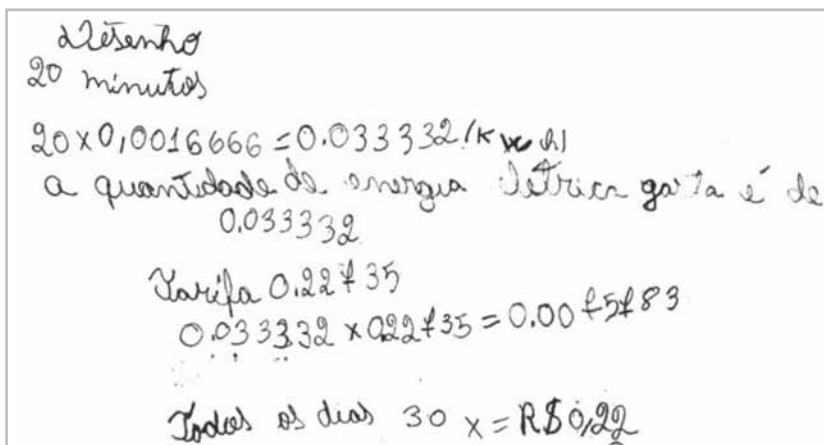 Desenho
20 minutos
20 x 0,0016666 = 0.033332 (Kwh)
a quantidade de energia elétrica gasta é de
0.033332
Tarifa 0.22735
0.033332 x 0.22735 = 0.0075783
Todos os dias 30 x = R$ 0,22